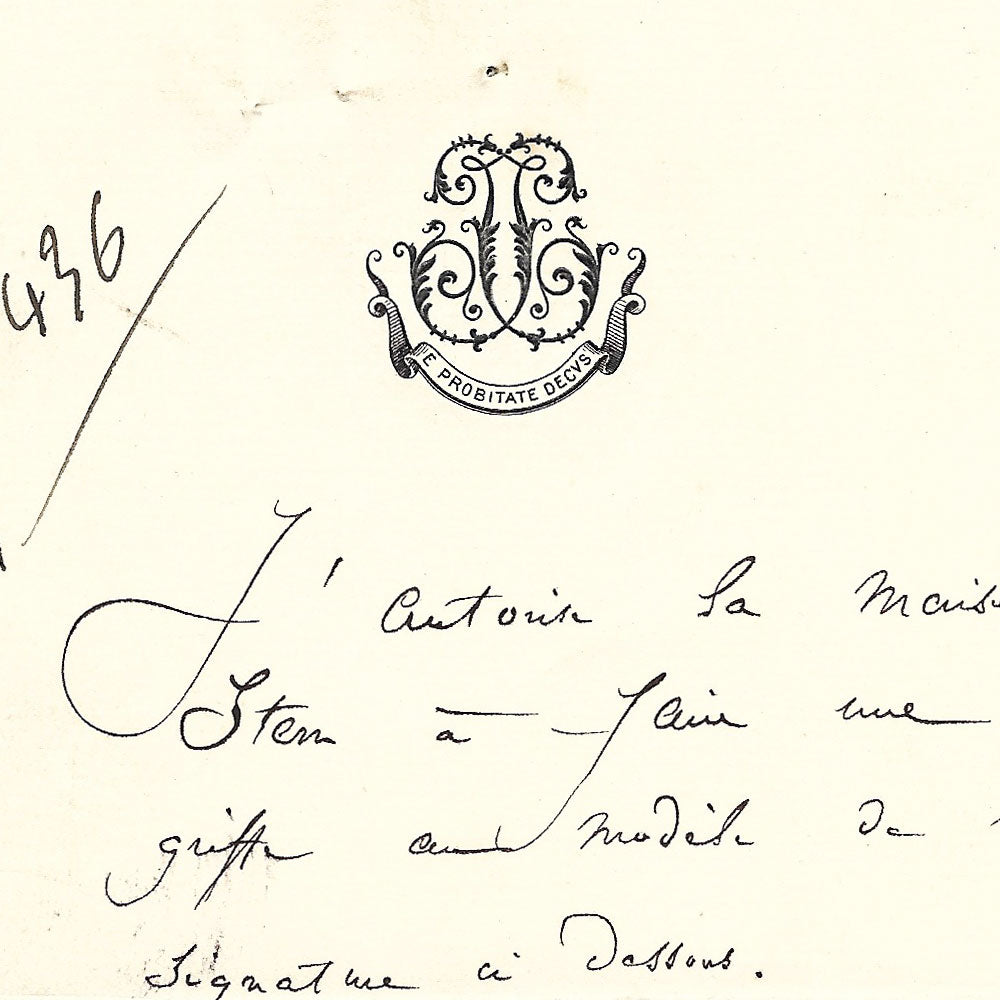 436
E PROBITATE DECVS
J'autorise la Mais
Stern à faire une
griffe au modèle de
signature ci dessous.